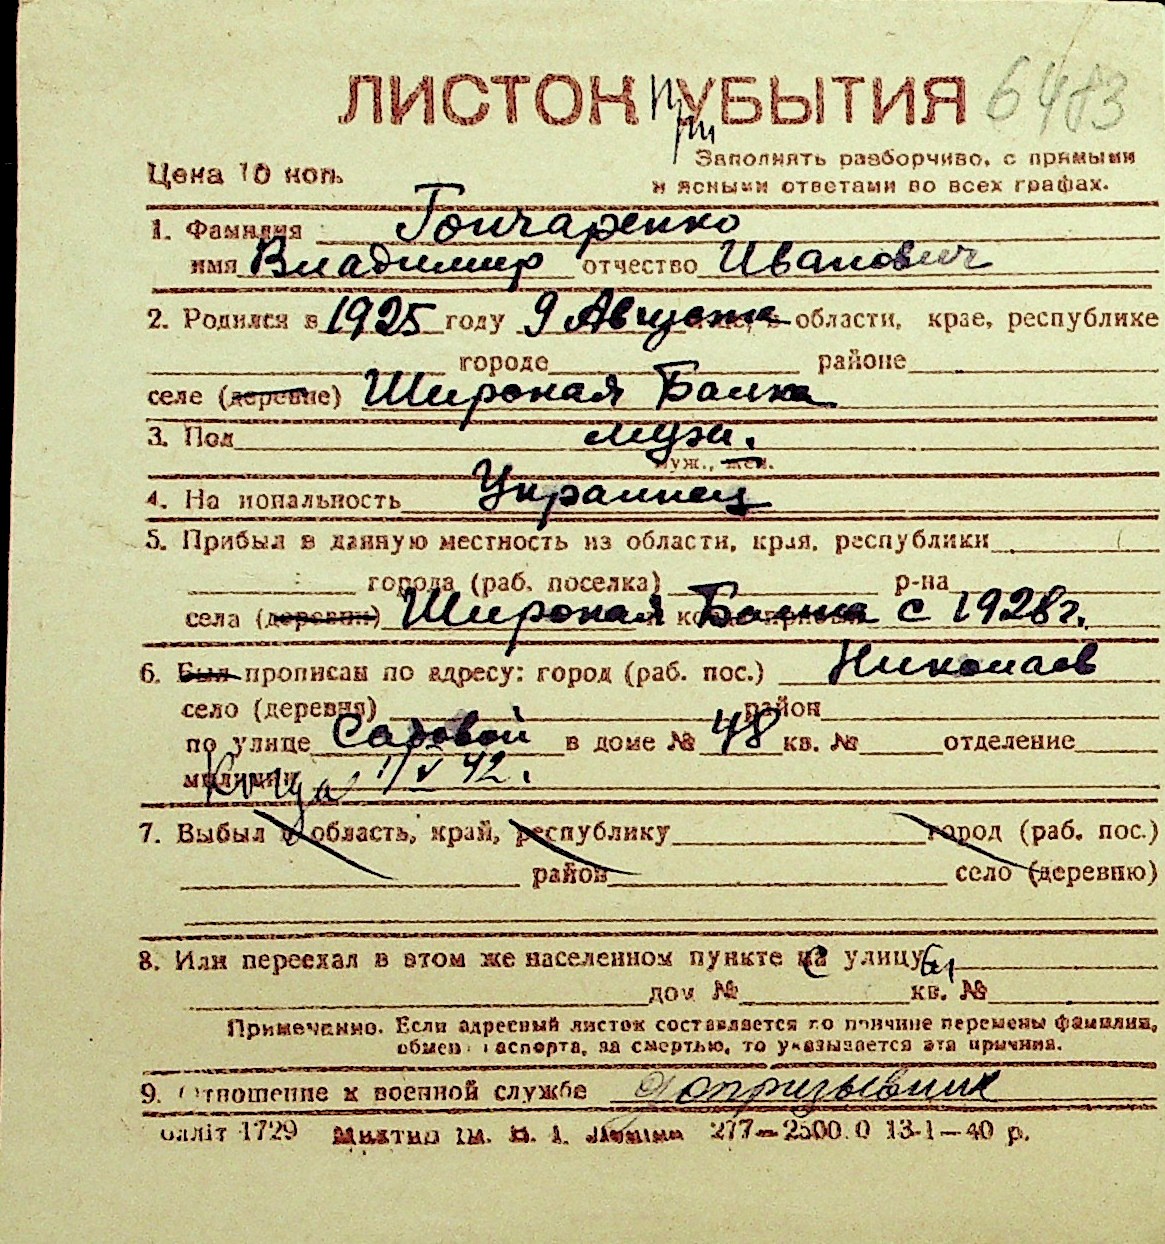 ЛИСТОК УБЫТИЯ 6483
при
Цена 10 коп.
Заполнять разборчиво, с прямыми
и ясными ответами во всех графах.
1. Фамилия Гончаренко
имя Владимир отчество Иванович
2. Родился в 1925 году 9 Августа области, крае, республике
городе районе
селе (деревне) Широкая Балка
3. Пол муж.
муж., жен.
4. Национальность Украинец
5. Прибыл в данную местность из области, края, республики
города (раб. поселка) р-на
села (деревни) Широкая Балка с 1928г.
6. Был прописан по адресу: город (раб. пос.) Николаев
село (деревня) район
по улице Садовой в доме № 48 кв. № отделение
милиции
Когда 1/V 42.
7. Выбыл в область, край, республику город (раб. пос.)
район село (деревню)
8. Или переехал в этом же населенном пункте на с улицу ы
дом № кв. №
Примечание. Если адресный листок составляется по причине перемены фамилии,
обмена паспорта, за смертью, то указывается эта причина.
9. Отношение к военной службе допризывник
блліт 1729 Миктип ім. В. І. Леніна 277—2500.0 13-1—40 р.